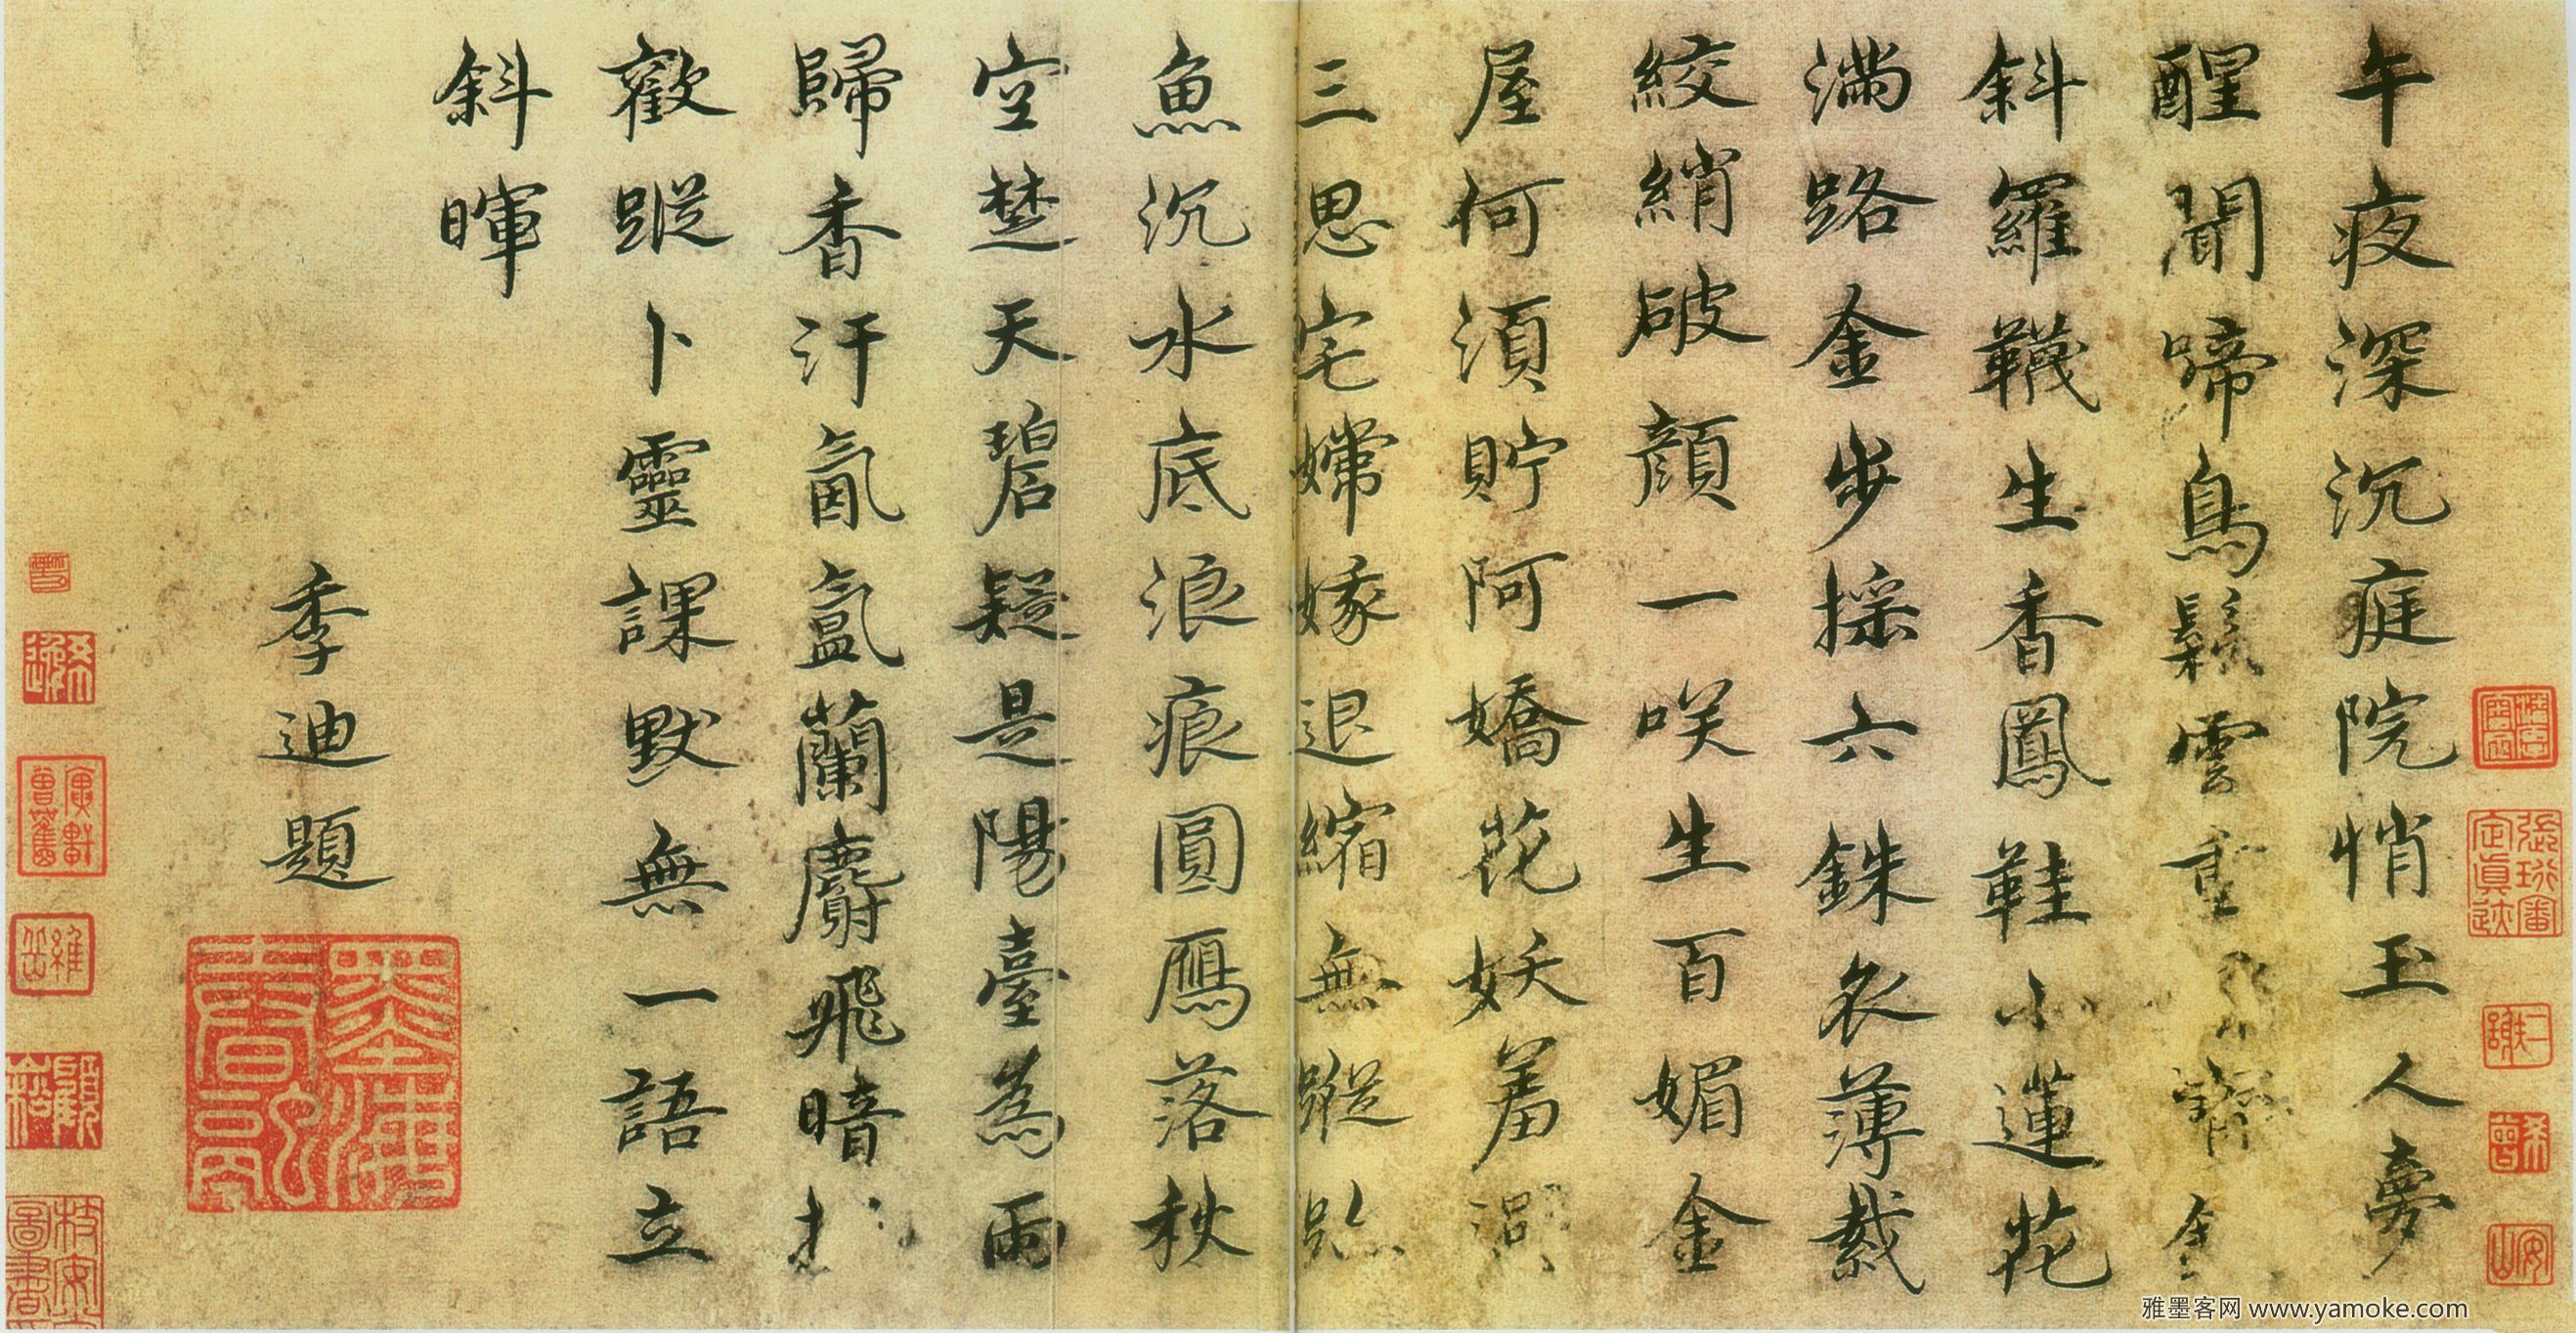 午夜深沉庭院悄玉人夢
醒聞啼鳥鬆雲重
斜羅韈生香鳳鞋小蓮花
滿路金步搖六銖衣薄裁
絞綃破顏一咲生百媚金
屋何須貯阿嬌花妖羞
三思宅嫦娥退縮無蹤
魚沉水底浪痕圓鴈落秋
空楚天碧疑是陽臺為雨
歸香汗氤氳蘭麝飛暗
歡蹤卜靈課默無一語立
斜暉
季迪題
雅墨客网 www.yamoke.com